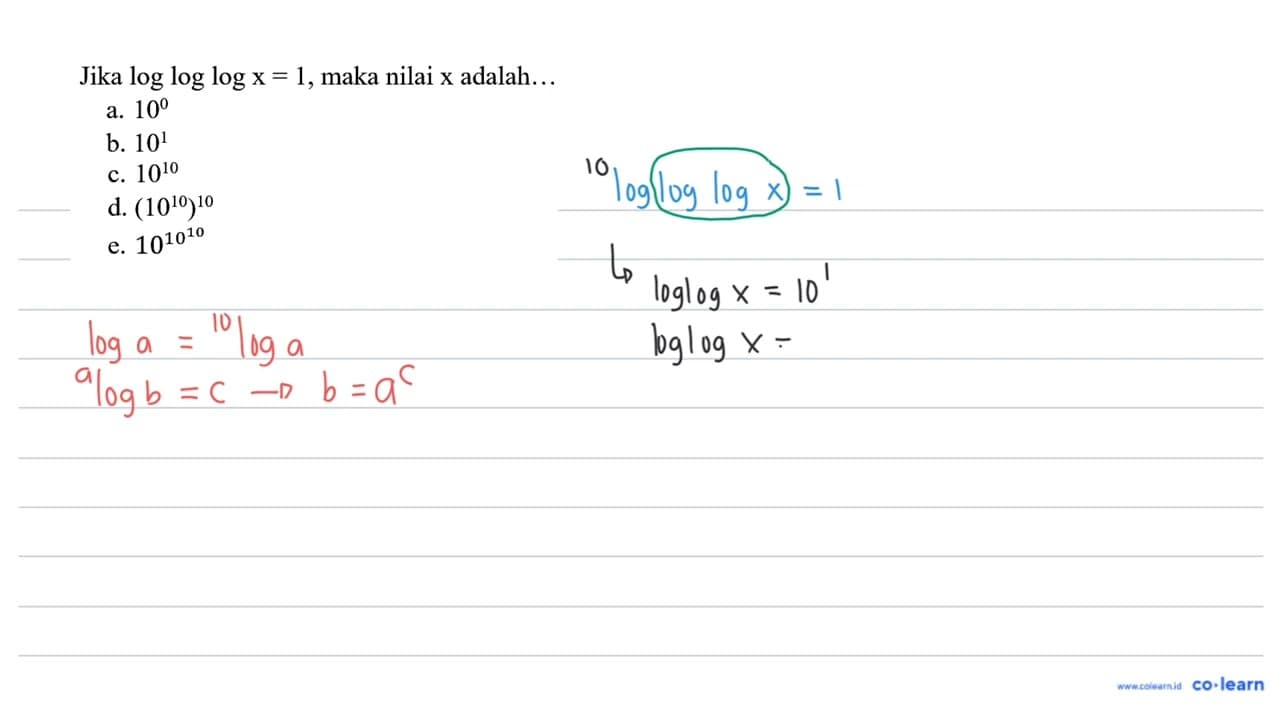 Jika log log log x = 1, maka nilai x adalah…
a. 10⁰
b. 10¹
c. 10¹⁰
d. (10¹⁰)¹⁰
e. 10^10^10
¹⁰log(log log x) = 1
↳ loglog x = 10¹
loglog x =
log a = ¹⁰log a
ᵃlog b = c → b = aᶜ
www.colearn.id co·learn